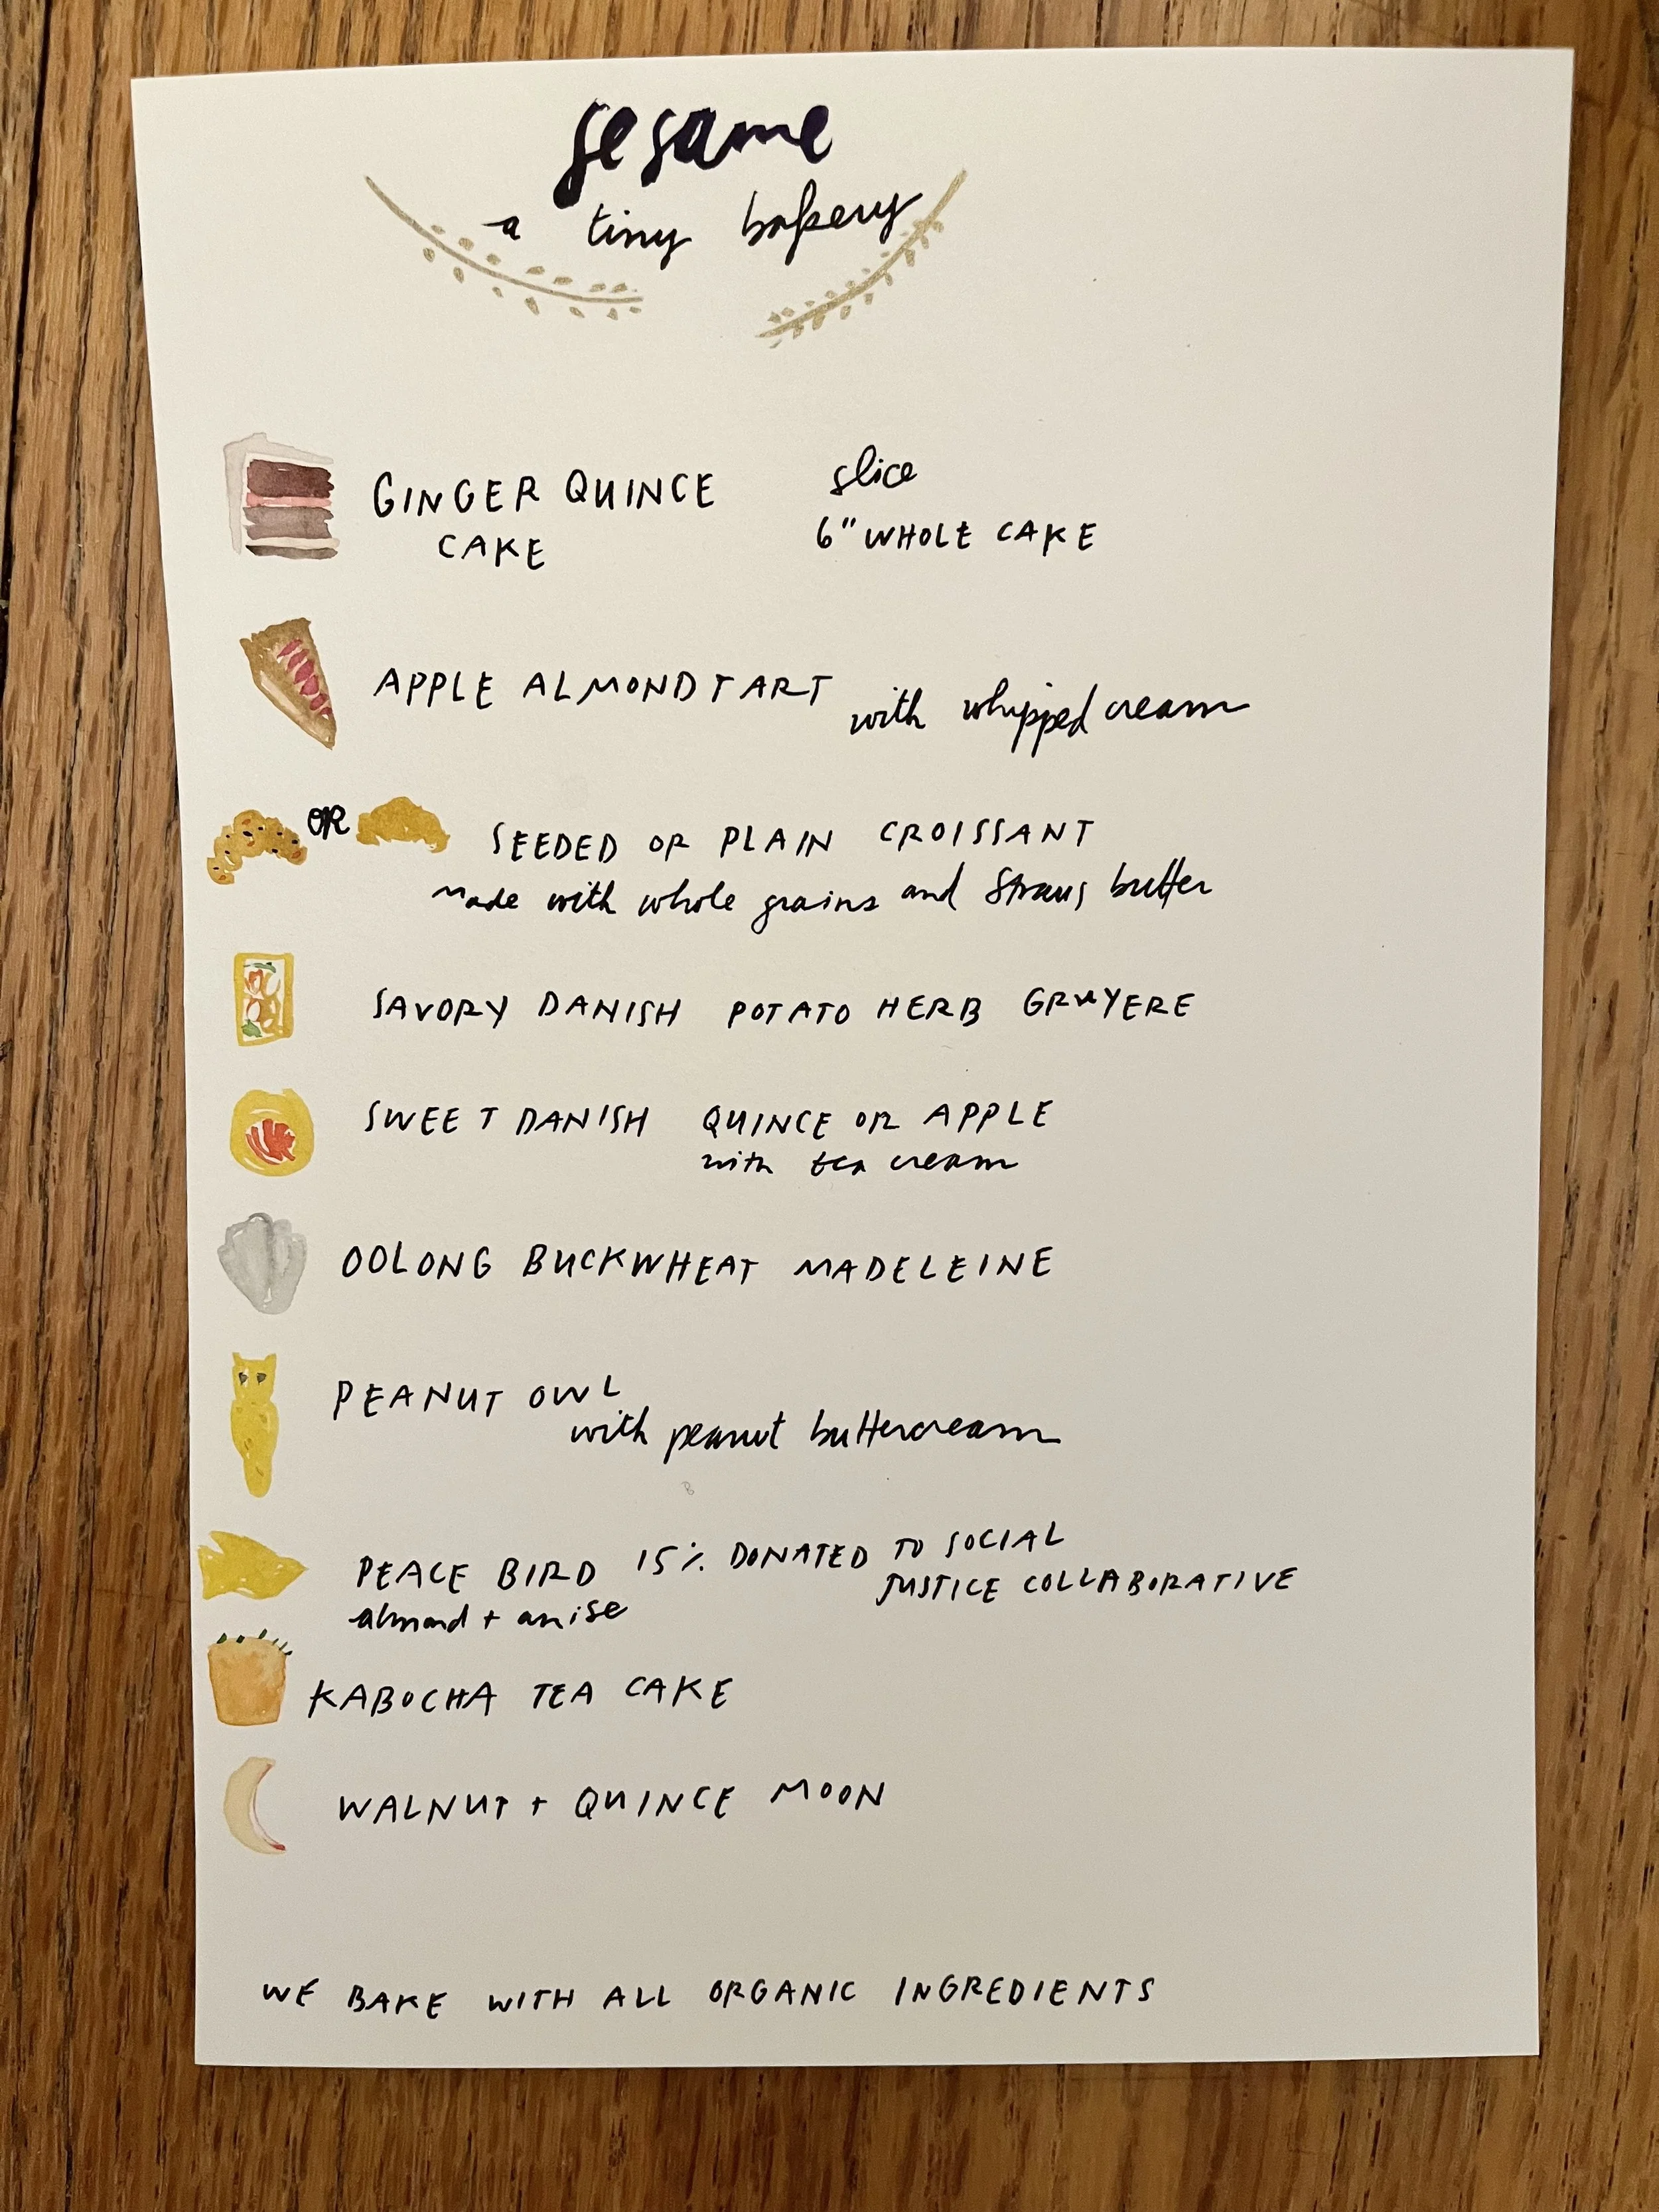 sesame
a tiny bakery
GINGER QUINCE CAKE
slice
6" WHOLE CAKE
APPLE ALMOND TART with whipped cream
OR
SEEDED OR PLAIN CROISSANT
made with whole grains and Straus butter
SAVORY DANISH POTATO HERB GRUYERE
SWEET DANISH QUINCE OR APPLE
with tea cream
OOLONG BUCKWHEAT MADELEINE
PEANUT OWL
with peanut buttercream
PEACE BIRD 15% DONATED TO SOCIAL
JUSTICE COLLABORATIVE
almond + anise
KABOCHA TEA CAKE
WALNUT + QUINCE MOON
WE BAKE WITH ALL ORGANIC INGREDIENTS